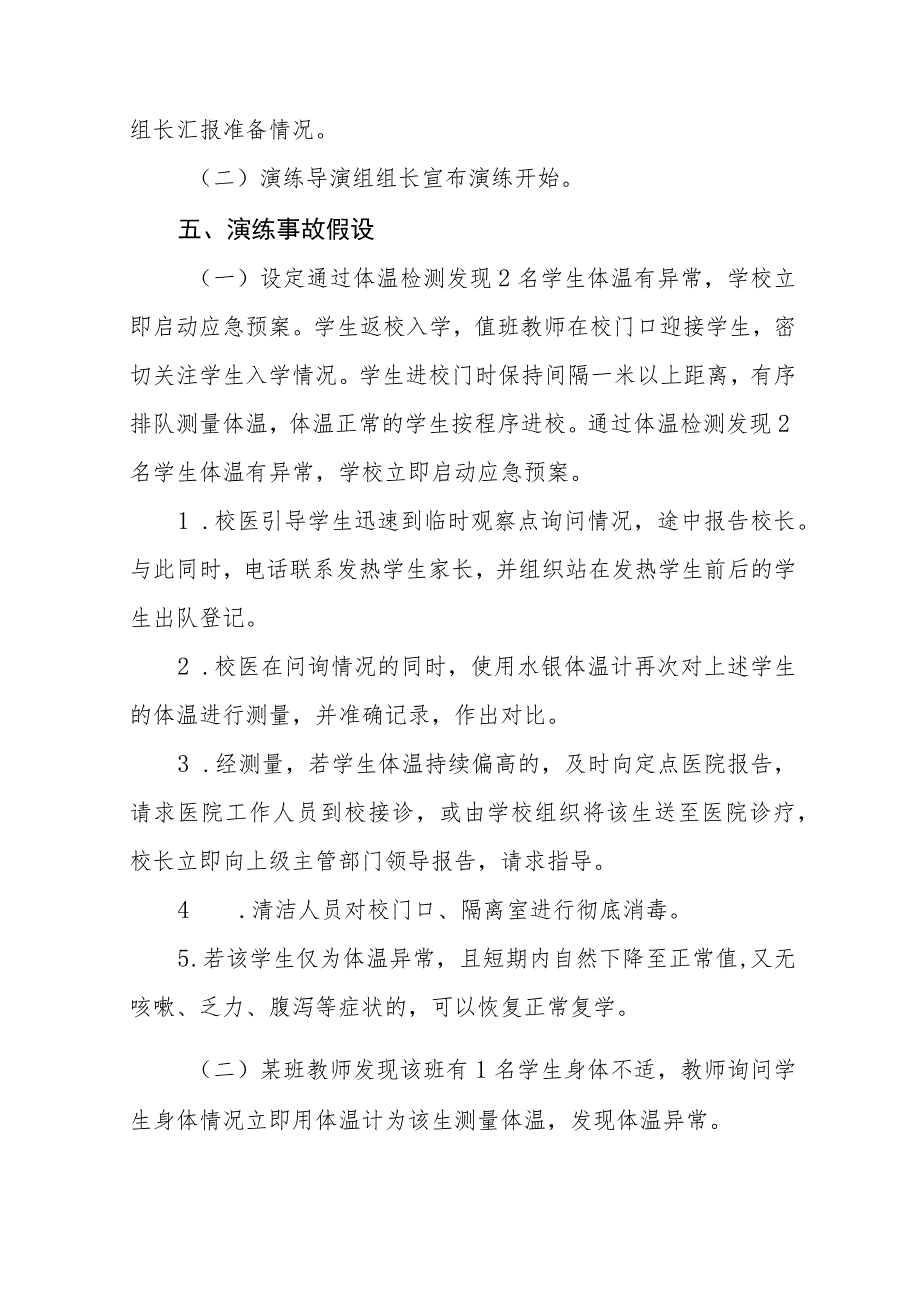 组长汇报准备情况。
（二）演练导演组组长宣布演练开始。
五、演练事故假设
（一）设定通过体温检测发现2名学生体温有异常，学校立
即启动应急预案。学生返校入学，值班教师在校门口迎接学生，密
切关注学生入学情况。学生进校门时保持间隔一米以上距离，有序
排队测量体温，体温正常的学生按程序进校。通过体温检测发现2
名学生体温有异常，学校立即启动应急预案。
1 .校医引导学生迅速到临时观察点询问情况，途中报告校长。
与此同时，电话联系发热学生家长，并组织站在发热学生前后的学
生出队登记。
2 .校医在问询情况的同时，使用水银体温计再次对上述学生
的体温进行测量，并准确记录，作出对比。
3 .经测量，若学生体温持续偏高的，及时向定点医院报告，
请求医院工作人员到校接诊，或由学校组织将该生送至医院诊疗，
校长立即向上级主管部门领导报告，请求指导。
4 .清洁人员对校门口、隔离室进行彻底消毒。
5.若该学生仅为体温异常，且短期内自然下降至正常值,又无
咳嗽、乏力、腹泻等症状的，可以恢复正常复学。
（二）某班教师发现该班有1名学生身体不适，教师询问学
生身体情况立即用体温计为该生测量体温，发现体温异常。